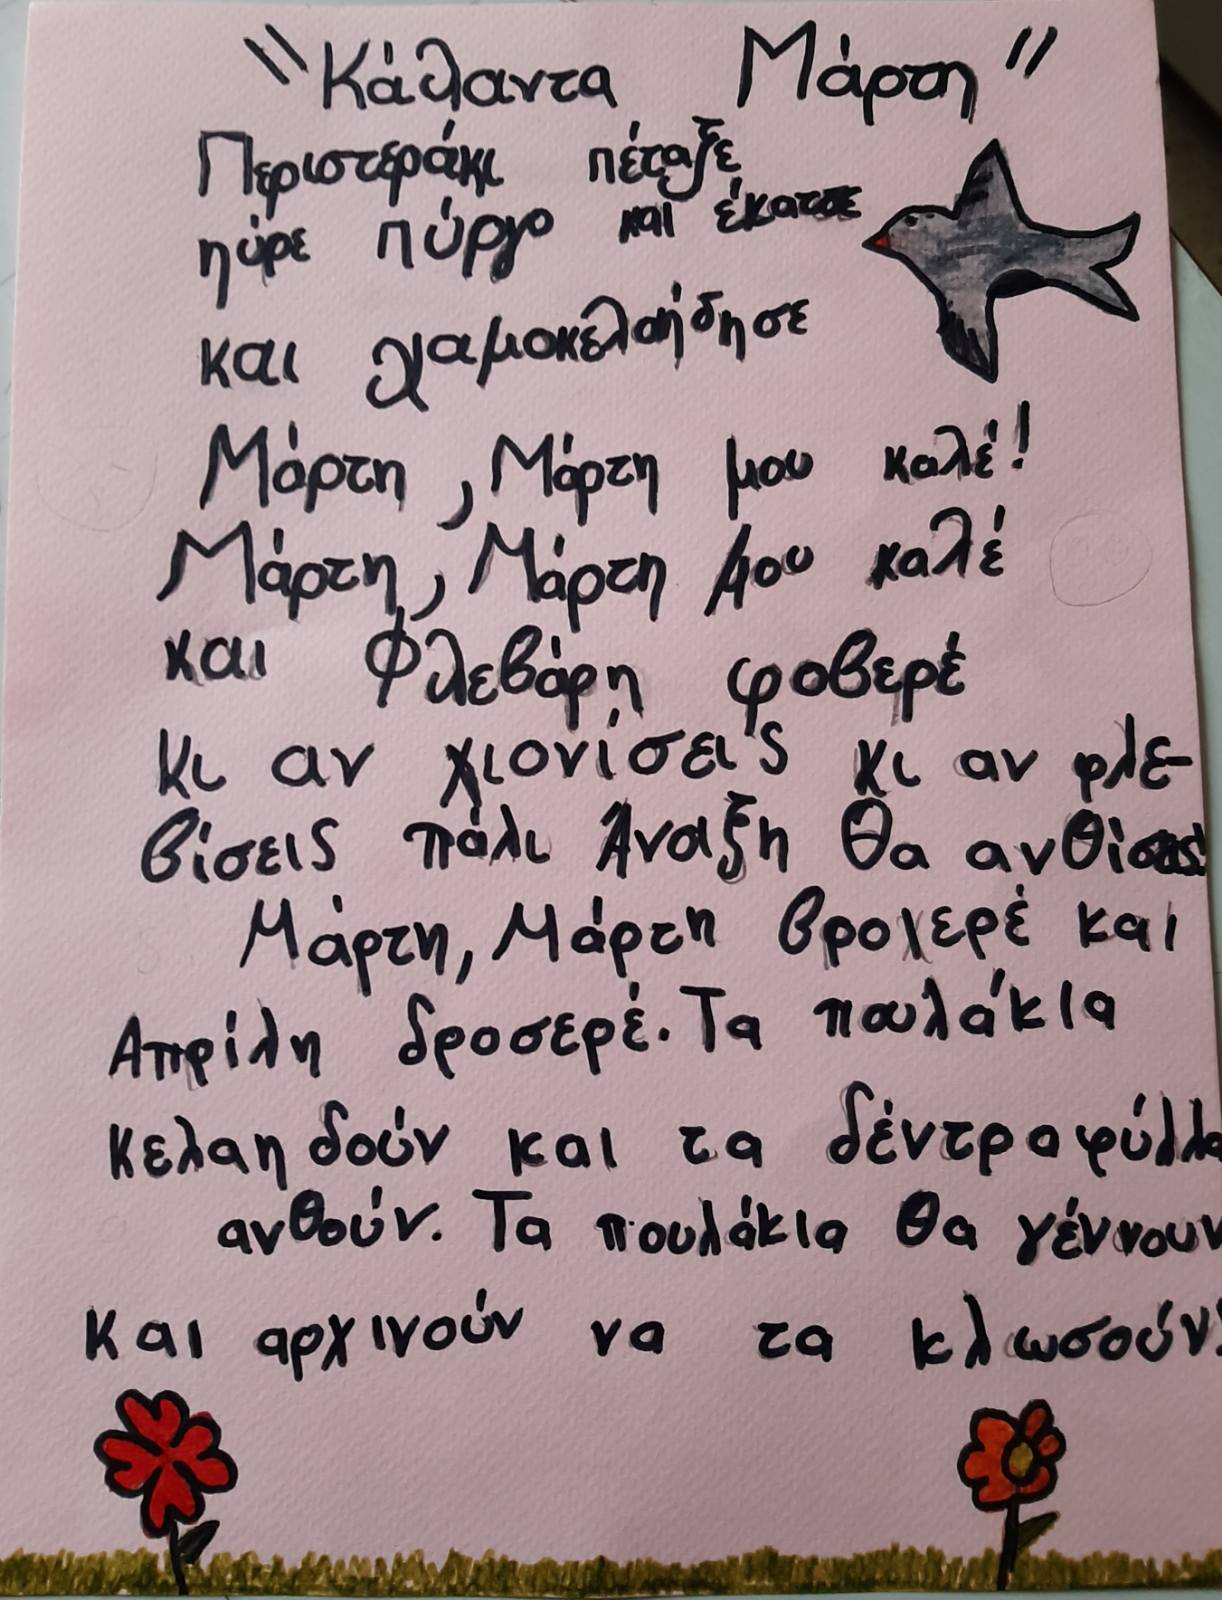 "Κάλαντα Μάρτη"
Περιστεράκι πέταξε
ηύρε πύργο και έκατσε
και χαμοκελαήδησε
Μάρτη, Μάρτη μου καλέ!
Μάρτη, Μάρτη μου καλέ
και Φλεβάρη φοβερέ
κι αν χιονίσεις κι αν φλε-
βίσεις πάλι Άναξη θα ανθίσεις!
Μάρτη, Μάρτη βροχερέ και
Απρίλη δροσερέ. Τα πουλάκια
κελαηδούν και τα δέντραφύλλα
ανθούν. Τα πουλάκια θα γέννουν
και αρχινούν να τα κλωσούν!